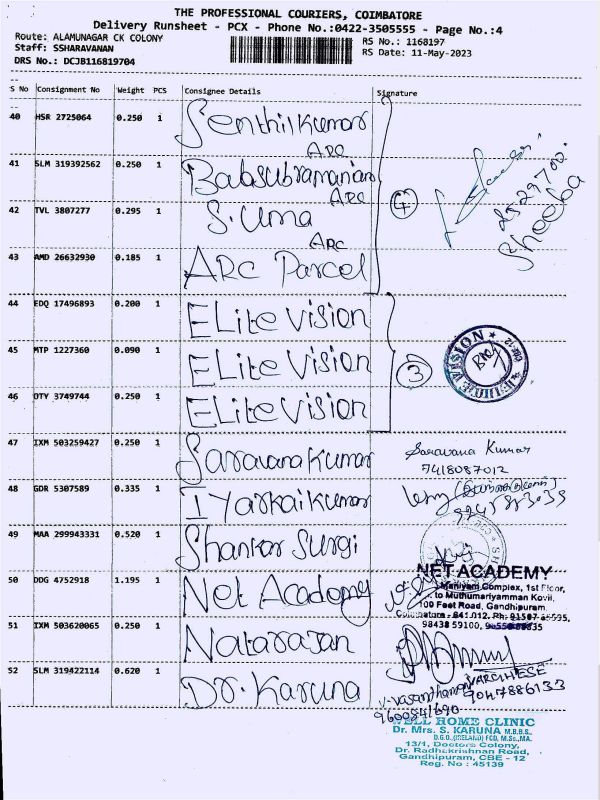 THE PROFESSIONAL COURIERS, COIMBATORE
Delivery Runsheet - PCX - Phone No.:0422-3505555 - Page No.:4
Route: ALAMUNAGAR CK COLONY
RS No.: 1168197
Staff: SSHARAVANAN
RS Date: 11-May-2023
DRS No.: DCJB116819704
S No Consignment No Weight PCS Consignee Details Signature
40 HSR 2725064 0.250 1 Senthilkumar
ARC
41 SLM 319392562 0.250 1 Balasubramanian
ARC
42 TVL 3807277 0.295 1 S. Uma
ARC
43 AMD 26632930 0.185 1 ARC Parcel
4
Sheeba
44 EDQ 17496893 0.200 1 ELite Vision
45 MTP 1227360 0.090 1 ELite Vision
3
46 OTY 3749744 0.250 1 ELite Vision
47 IXM 503259427 0.250 1 Saravana Kumar
Saravana Kumar
7418087012
48 GDR 5307589 0.335 1 Iyarkai Kumar
49 MAA 299943331 0.520 1 Shankar Surgi
50 DDG 4752918 1.195 1 Net Academy
NET ACADEMY
Maniyam Complex, 1st Floor,
to Muthumariyamman Kovil,
100 Feet Road, Gandhipuram.
Coimbatore - 641 012. Ph:
98438 59100,
51 IXM 503620065 0.250 1 Natarajan
52 SLM 319422114 0.620 1 Dr. Karuna
VARGHESE
9047886133
V. Vasanthamani
WELL HOME CLINIC
Dr. Mrs. S. KARUNA M.B.B.S.,
D.G.O.,(IRELAND) FCD, M.Sc.,MA.
13/1, Doctors Colony,
Dr. Radhakrishnan Road,
Gandhipuram, CBE - 12
Reg. No : 45139